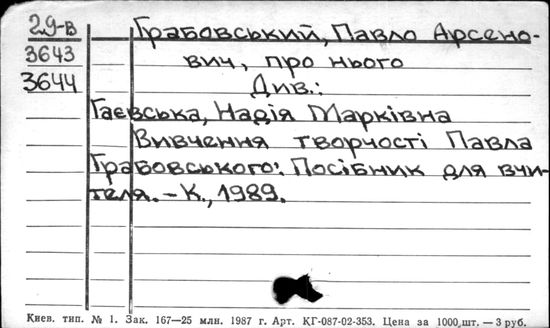 29-в Грабовський, Павло Арсено-
3643 вич, про нього
3644 Див.:
Гаєвська, Надія Марківна
Вивчення творчості Павла
Грабовського: Посібник для вчи-
теля. – К., 1989.
Киев. тип. № 1. Зак. 167—25 млн. 1987 г. Арт. КГ-087-02-353. Цена за 1000 шт. — 3 руб.